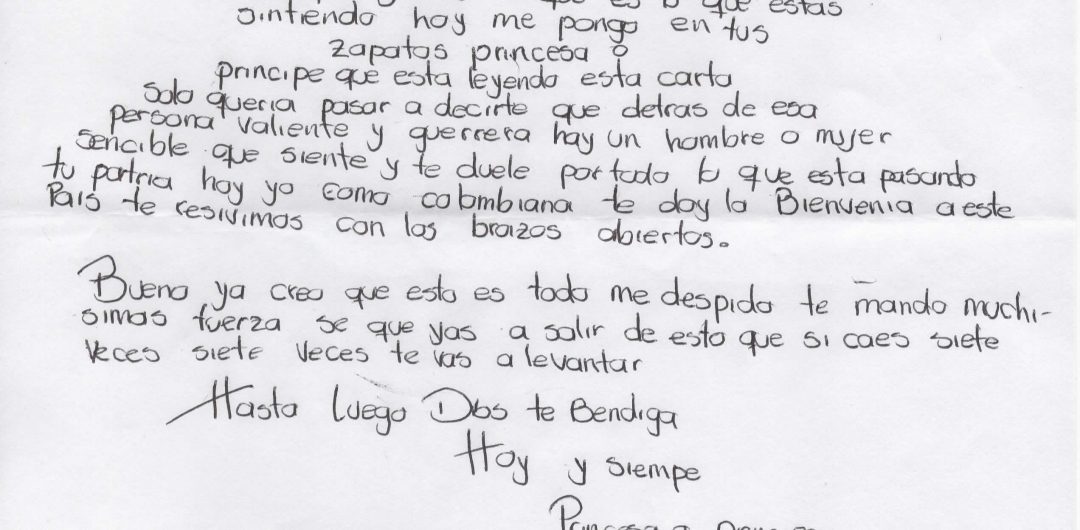 que estas
sintiendo hoy me pongo en tus
zapatos princesa o
principe que esta leyendo esta carta
Solo queria pasar a decirte que detras de esa
persona valiente y guerrera hay un hombre o mujer
sencible que siente y te duele por todo lo que esta pasando
tu patria hoy yo como colombiana te doy la Bienvenia a este
Pais te resivimos con los brazos abiertos.
Bueno ya creo que esto es todo me despido te mando muchi-
simas fuerza se que vas a salir de esto que si caes siete
veces siete veces te vas a levantar
Hasta luego Dios te Bendiga
Hoy y siempe